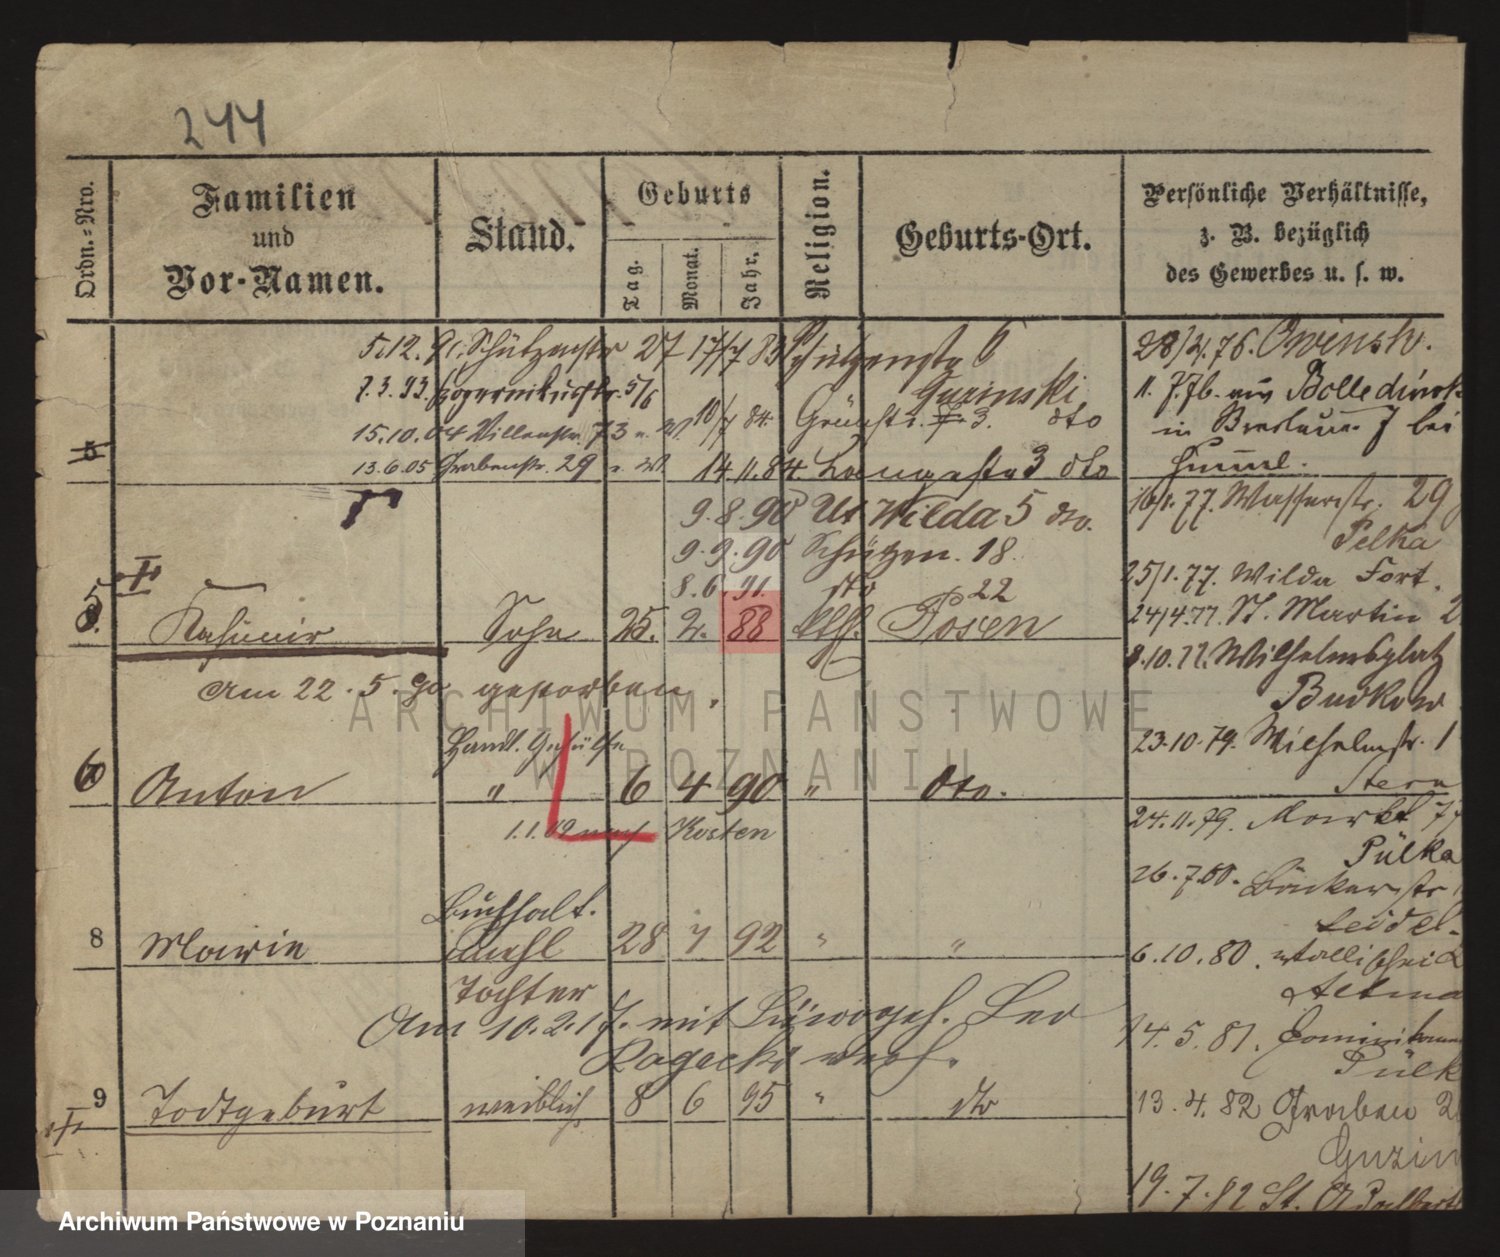 244
Ordn.=Nro.
Familien
und
Vor-Namen.
Stand.
Geburts
Tag.
Monat.
Jahr.
Religion.
Geburts-Ort.
Persönliche Verhältnisse,
z. B. bezüglich
des Gewerbes u. s. w.
5.12.91. Schützenstr 27 17/7 83 Schützenstr 6
Guzinski
7.3.93. 5/6
15.10.04 Villenstr. 7 3 n. W. 10/7 84. Grünstr. 3. dto
13.6.05 Grabenstr. 29 n. W. 14.11.84. Langestr 3 dto
9.8.90 Ut Wilda 5 dto.
9.9.90 Schützen. 18
8.6.91. dto 22
5 Kasimir Sohn 25. 2. 88 kth. Posen
Am 22.5.90 gestorben.
Handl. Gehülfe
Anton " 6 4 90 " dto.
1.1.09 nach Kosten
Buchhalt.
8 Marie 28 7 92 " "
Tochter
Am 10.2.17. mit Leo
verh.
9 Todtgeburt weiblich 8 6 95 " dto
28/4.76. Owinsk.
11.7.76. aus
in Breslau. 7 bei
Himmel.
16/1.77. Wasserstr. 29
Pelka
25/1.77. Wilda Fort.
24/4.77. St. Martin 2
8.10.77. Wilhelmsplatz
Budkow
23.10.79. Wilhelmstr. 1
Stern
24.11.79. Markt 77
Pülka
26.7.80. Bäckerstr
Seidel.
6.10.80. Wallischei
14.5.81.
Pülk
13.4.82 Graben 2
Guzin
19.7.82 St. Adalbert
ARCHIWUM PAŃSTWOWE
W POZNANIU
Archiwum Państwowe w Poznaniu